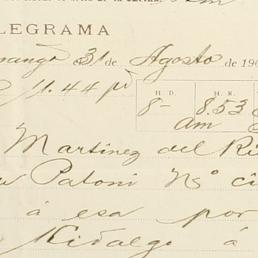 LEGRAMA
31 de Agosto de 190
H. D. H. R.
11.44 8- 8.53
am
Martinez del Ri
Patoni Nº ci
á esa por
Hidalgo á